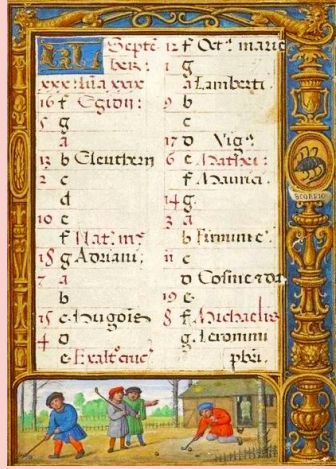 KL Septē
ber:
xxx: lūa xxix
16 f Egidii:
5 g
a
13 b Eleutherii
2 c
d
10 e
f Nat: mē
18 g Adriani:
7 a
b
15 c Hugois
4 d
e Exalt' cruc'
12 f Oct.ª marie
1 g
a Lamberti.
9 b
c
17 d Vig.ª
6 e Mathei:
f Maurici.
14 g.
3 a
b Firmini e'.
11 c
d Cosme & da
19 e.
8 f Michaelis
g. Ieronimi
pbri.
SCORPIO